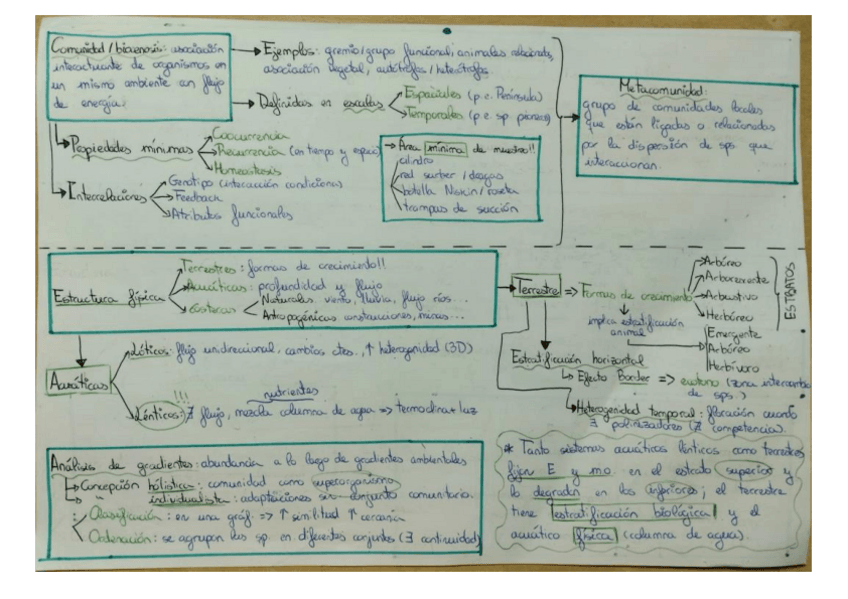 Comunidad / biocenosis: asociación
interactuante de organismos en
un mismo ambiente con flujo
de energía.
Ejemplos: gremio/grupo funcional, animales relacionados,
asociación vegetal, autótrofos / heterótrofos
Definidas en escalas
Espaciales (p.e. Península)
Temporales (p.e. sp. pioneras)
Propiedades mínimas
Coocurrencia
Recurrencia (en tiempo y espacio)
Homeostasis
Interrelaciones
Genotipo (interacción condiciones)
Feedback
Atributos funcionales
Área mínima de muestreo!!
cilindro
red surber / dragas
botella Niskin / roseta
trampas de succión
Metacomunidad:
grupo de comunidades locales
que están ligadas o relacionadas
por la dispersión de sps que
interaccionan.
Estructura física
Terrestres: formas de crecimiento!!
Acuáticas: profundidad y flujo
Naturales: viento, lluvia, flujo ríos...
Antropogénicas: construcciones, minas...
Acuáticas
Lóticos: flujo unidireccional, cambios ctes., ↑ heterogenidad (3D)
!!! nutrientes
Lénticos: ∄ flujo, mezcla columna de agua => termoclina + luz
Terrestre => Formas de crecimiento
Arbóreo
Arborescente
Arbustivo
Herbáceo
ESTRATOS
implica estratificación
animal
Emergente
Arbóreo
Herbívoro
Estratificación horizontal
Efecto Border => ecotono (zona intercambio
de sps.)
Heterogenidad temporal: floración cuando
∃ polinizadores (∄ competencia).
Análisis de gradientes: abundancia a lo largo de gradientes ambientales
Concepción holística: comunidad como superorganismo
" individualista: adaptaciones sin conjunto comunitario.
Clasificación: en una gráf. => ↑ similitud ↑ cercanía
Ordenación: se agrupan las sp. en diferentes conjuntos (∃ continuidad)
* Tanto sistemas acuáticos lénticos como terrestres
fijan E y mo. en el estrato superior y
lo degradan en los inferiores; el terrestre
tiene estratificación biológica y el
acuático física (columna de agua).